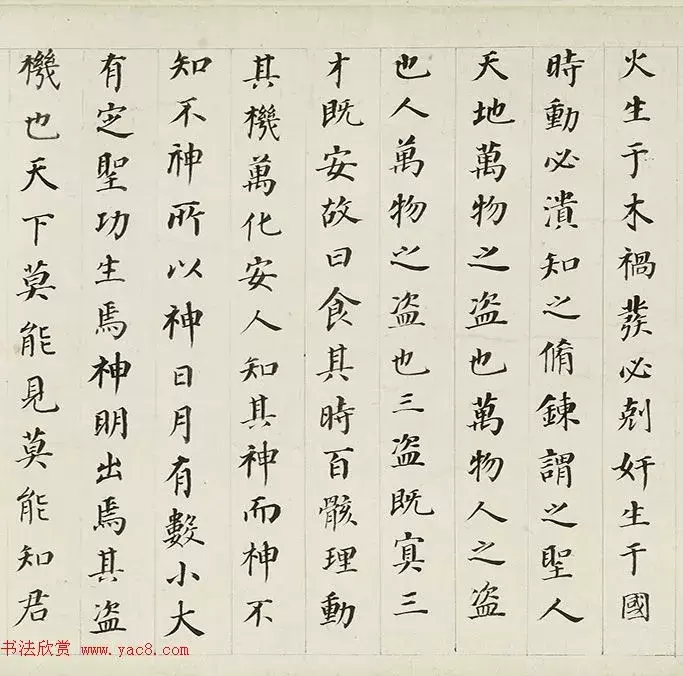 火生于木禍發必剋奸生于國
時動必潰知之脩鍊謂之聖人
天地萬物之盗也萬物人之盗
也人萬物之盗也三盗既㝠三
才既安故曰食其時百骸理動
其機萬化安人知其神而神不
知不神所以神日月有數小大
有㝎聖功生焉神明出焉其盗
機也天下莫能見莫能知君
书法欣赏 www.yac8.com